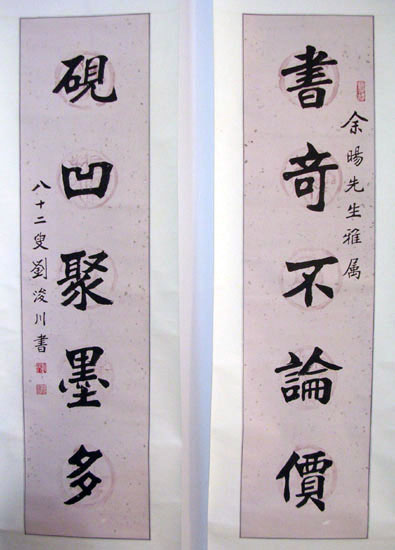 余暘先生雅属
書奇不論價
硯凹聚墨多
八十二叟劉浚川書